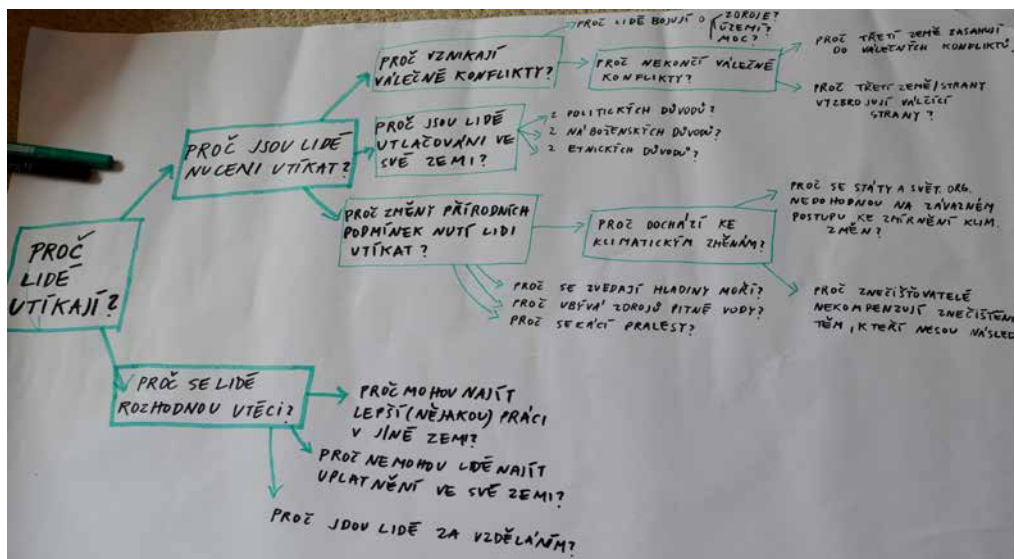 PROČ LIDÉ UTÍKAJÍ?
PROČ
LIDÉ
UTÍKAJÍ?
PROČ JSOU LIDÉ
NUCENI UTÍKAT?
PROČ VZNIKAJÍ
VÁLEČNÉ KONFLIKTY?
PROČ LIDÉ BOJUJÍ O
ZDROJE?
ÚZEMÍ?
MOC?
PROČ NEKONČÍ VÁLEČNÉ
KONFLIKTY?
PROČ TŘETÍ ZEMĚ ZASAHUJÍ
DO VÁLEČNÝCH KONFLIKTŮ
PROČ TŘETÍ ZEMĚ/STRANY
VYZBROJUJÍ VÁLČÍCÍ
STRANY?
PROČ JSOU LIDÉ
UTLAČOVÁNI VE
SVÉ ZEMI?
Z POLITICKÝCH DŮVODŮ?
Z NÁBOŽENSKÝCH DŮVODŮ?
Z ETNICKÝCH DŮVODŮ?
PROČ ZMĚNY PŘÍRODNÍCH
PODMÍNEK NUTÍ LIDI
UTÍKAT?
PROČ DOCHÁZÍ KE
KLIMATICKÝM ZMĚNÁM?
PROČ SE STÁTY A SVĚT. ORG.
NEDOHODNOU NA ZÁVAZNÉM
POSTUPU KE ZMÍRNĚNÍ KLIM.
ZMĚN?
PROČ ZNEČIŠŤOVATELÉ
NEKOMPENZUJÍ ZNEČIŠTĚN
TĚM, KTEŘÍ NESOU NÁSLED
PROČ SE ZVEDAJÍ HLADINY MOŘÍ?
PROČ UBÝVÁ ZDROJŮ PITNÉ VODY?
PROČ SE KÁCÍ PRALESY?
PROČ SE LIDÉ
ROZHODNOU UTÉCI?
PROČ MOHOU NAJÍT
LEPŠÍ (NĚJAKOU) PRÁCI
V JINÉ ZEMI?
PROČ NEMOHOU LIDÉ NAJÍT
UPLATNĚNÍ VE SVÉ ZEMI?
PROČ JDOU LIDÉ ZA VZDĚLÁNÍM?